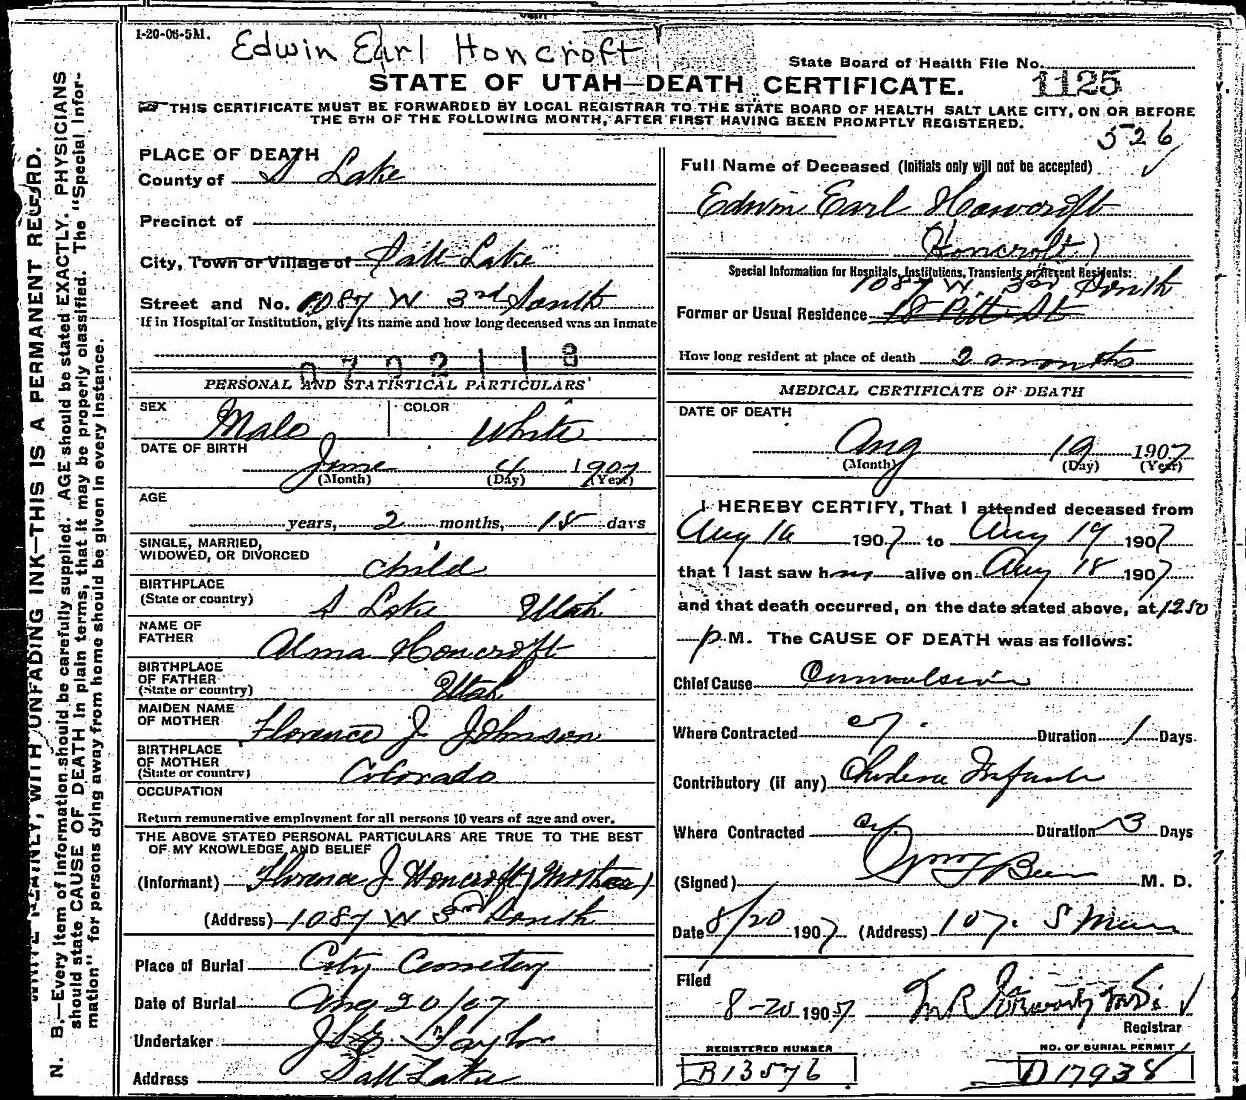 1-20-06-5M.
Edwin Earl Honcroft
State Board of Health File No. 1125
STATE OF UTAH—DEATH CERTIFICATE.
THIS CERTIFICATE MUST BE FORWARDED BY LOCAL REGISTRAR TO THE STATE BOARD OF HEALTH SALT LAKE CITY, ON OR BEFORE
THE 5TH OF THE FOLLOWING MONTH, AFTER FIRST HAVING BEEN PROMPTLY REGISTERED.
526
WRITE PLAINLY, WITH UNFADING INK—THIS IS A PERMANENT RECORD.
N. B.—Every item of information should be carefully supplied. AGE should be stated EXACTLY. PHYSICIANS
should state CAUSE OF DEATH in plain terms, that it may be properly classified. The "Special Infor-
mation" for persons dying away from home should be given in every instance.
PLACE OF DEATH
County of S Lake
Precinct of
City, Town or Village of Salt Lake
Street and No. 1087 W 3rd South
If in Hospital or Institution, give its name and how long deceased was an Inmate
0702118
PERSONAL AND STATISTICAL PARTICULARS
SEX Male COLOR White
DATE OF BIRTH
June 4 1907
(Month) (Day) (Year)
AGE
years, 2 months, 15 days
SINGLE, MARRIED,
WIDOWED, OR DIVORCED child
BIRTHPLACE
(State or country) S Lake Utah
NAME OF
FATHER Alma Honcroft
BIRTHPLACE
OF FATHER
(State or country) Utah
MAIDEN NAME
OF MOTHER Florence J Johnson
BIRTHPLACE
OF MOTHER
(State or country) Colorado
OCCUPATION
Return remunerative employment for all persons 10 years of age and over.
THE ABOVE STATED PERSONAL PARTICULARS ARE TRUE TO THE BEST
OF MY KNOWLEDGE AND BELIEF
(Informant) Florence J Honcroft (Mother)
(Address) 1087 W 3rd South
Place of Burial City Cemetery
Date of Burial Aug 20/07
Undertaker Taylor
Address Salt Lake
Full Name of Deceased (Initials only will not be accepted)
Edwin Earl Howcroft
(Honcroft)
Special Information for Hospitals, Institutions, Transients or Recent Residents:
1087 W. 3rd South
Former or Usual Residence 18 Pitt St
How long resident at place of death 2 months
MEDICAL CERTIFICATE OF DEATH
DATE OF DEATH
Aug 19 1907
(Month) (Day) (Year)
I HEREBY CERTIFY, That I attended deceased from
Aug 16 1907 to Aug 19 1907
that I last saw him alive on Aug 18 1907
and that death occurred, on the date stated above, at 1250
P.M. The CAUSE OF DEATH was as follows:
Chief Cause Convulsions
Where Contracted cy. Duration 1 Days.
Contributory (if any) Cholera Infantum
Where Contracted cy. Duration 3 Days
(Signed) M. D.
Date 8/20 1907 (Address) 107. S Main
Filed
8-20 1907
Registrar
REGISTERED NUMBER
B13576
NO. OF BURIAL PERMIT
D17938